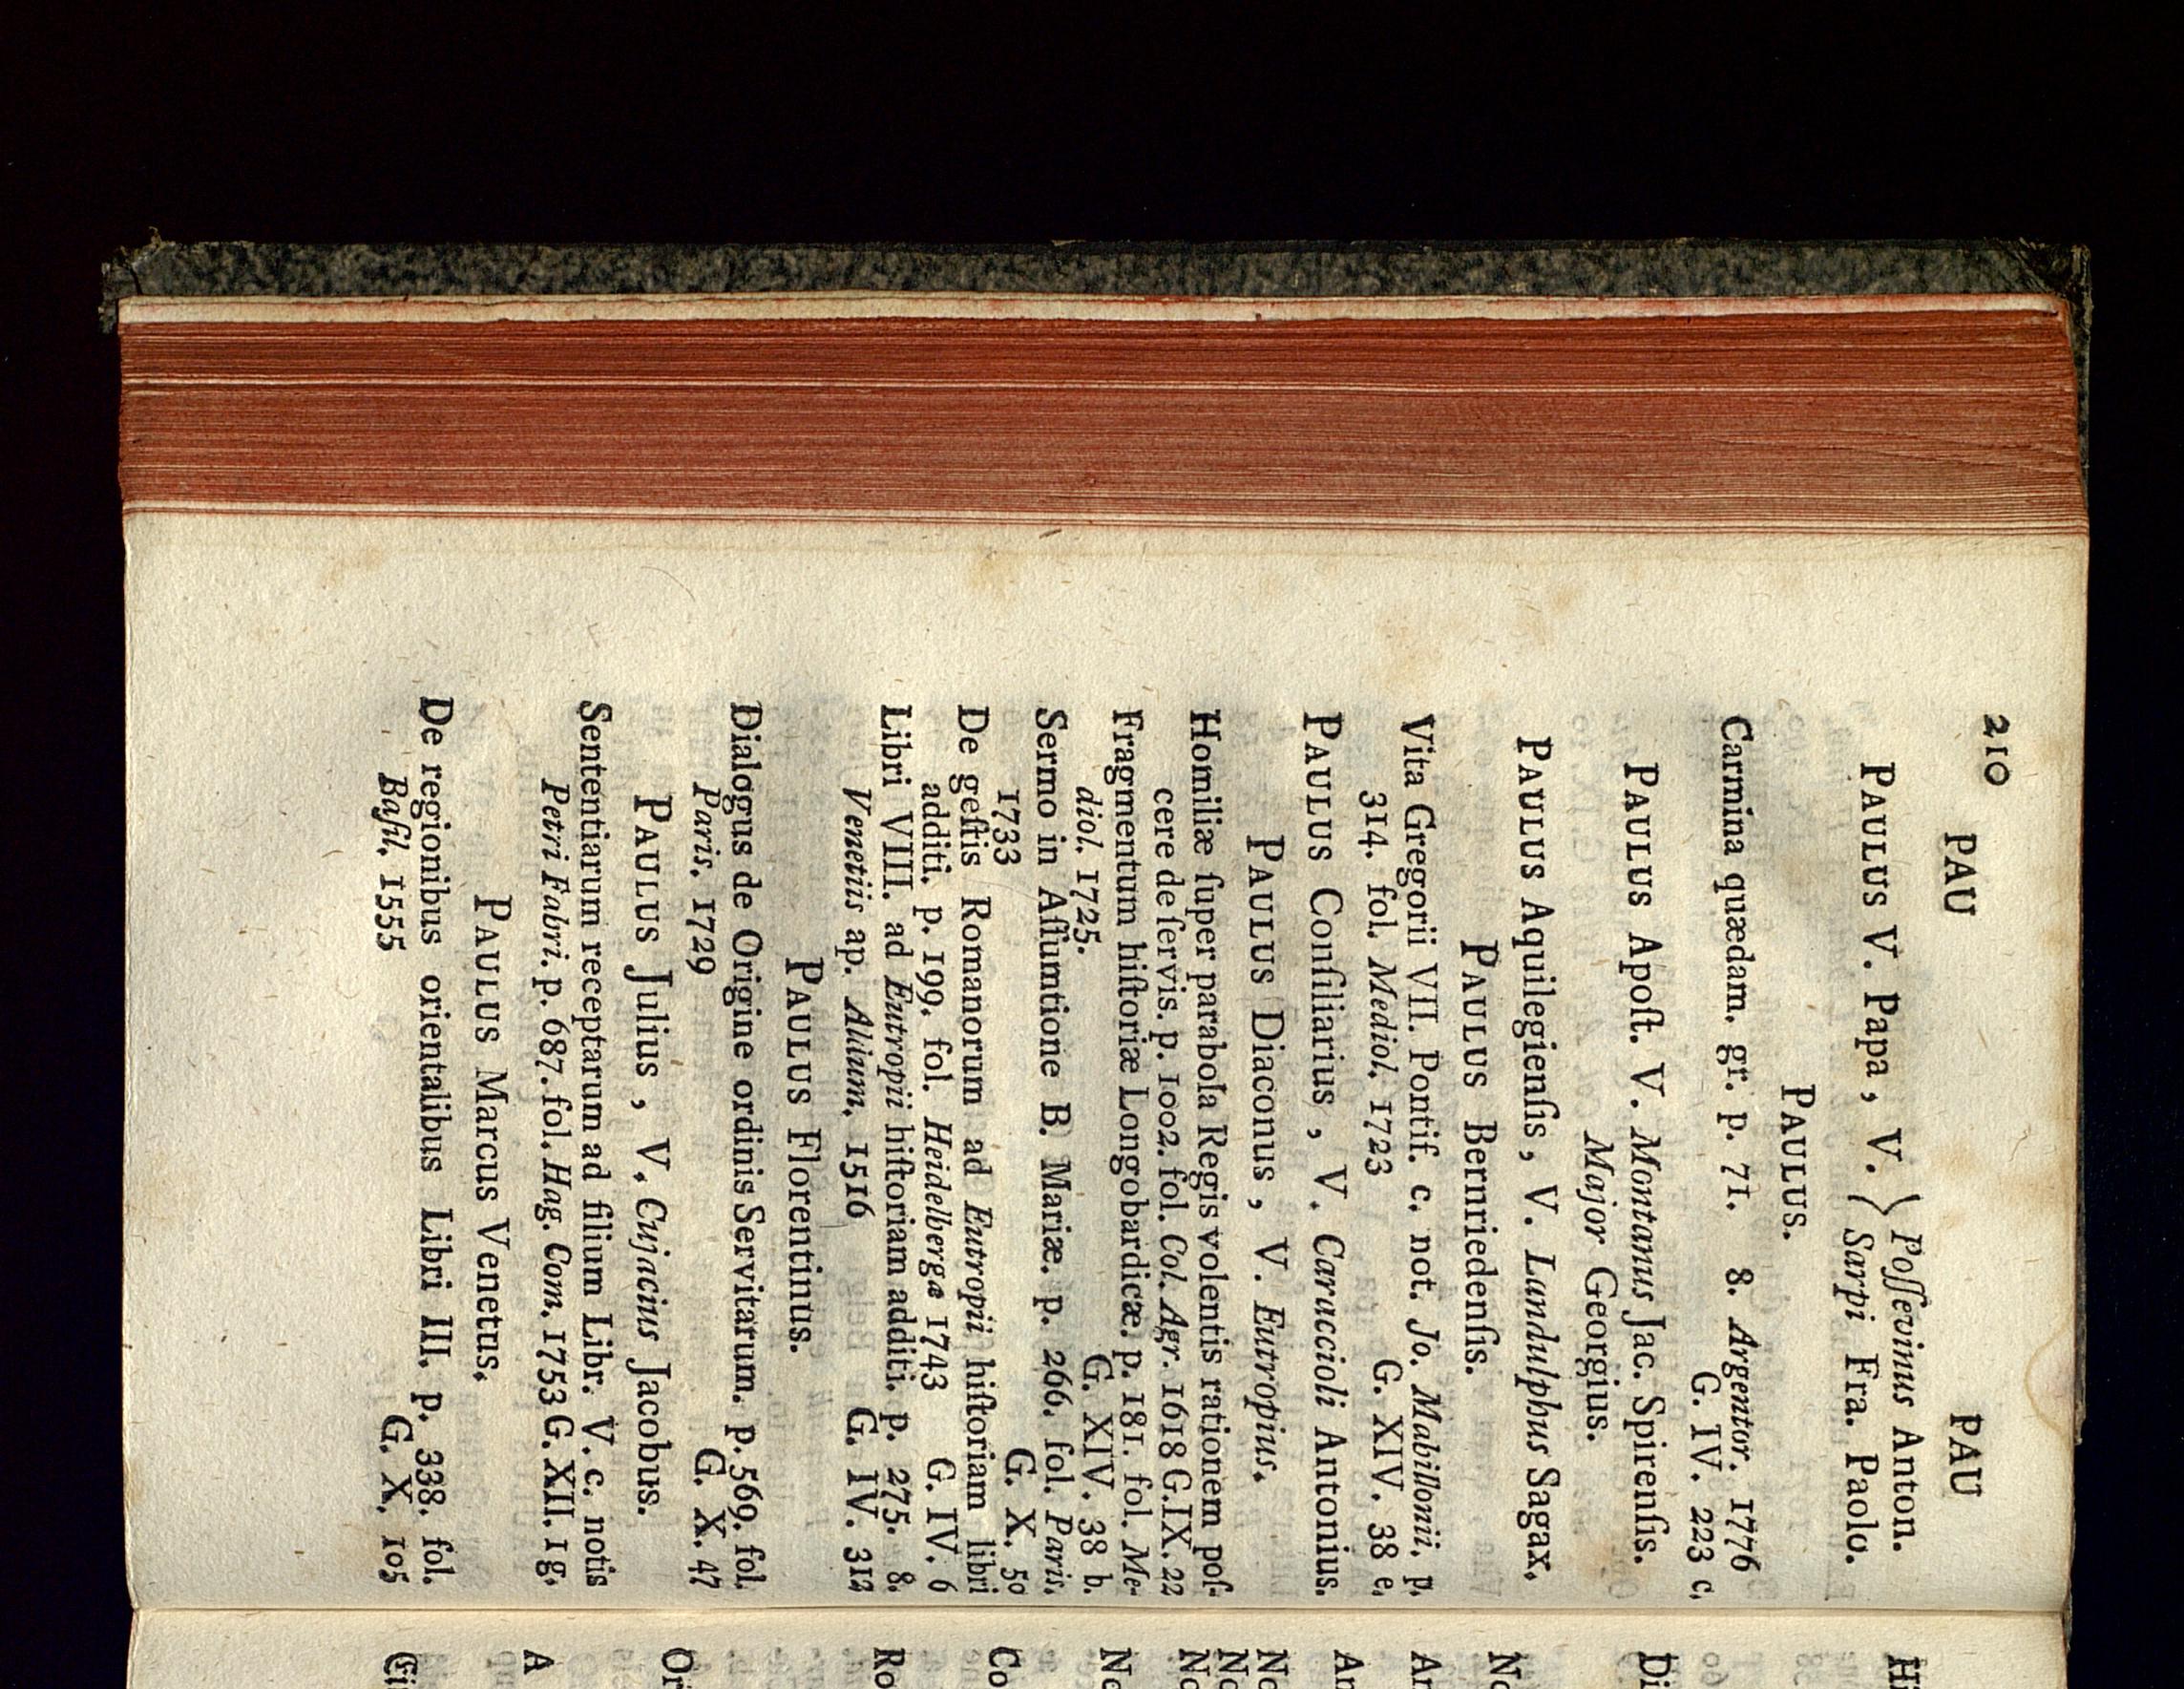 210 PAU PAU
PAULUS V. Papa, V. { Poſſevinus Anton.
Sarpi Fra. Paolo.
PAULUS.
Carmina quædam. gr. p. 71. 8. Argentor. 1776
G. IV. 223 c.
PAULUS Apoſt. V. Montanus Jac. Spirenſis.
Major Georgius.
PAULUS Aquilegienſis, V. Landulphus Sagax.
PAULUS Bernriedenſis.
Vita Gregorii VII. Pontif. c. not. Jo. Mabillonii. p.
314. fol. Mediol. 1723 G. XIV. 38 e.
PAULUS Conſiliarius, V. Caraccioli Antonius.
PAULUS Diaconus, V. Eutropius.
Homiliæ ſuper parabola Regis volentis rationem poſ-
cere de ſervis. p. 1002. fol. Col. Agr. 1618 G. IX. 22
Fragmentum hiſtoriæ Longobardicæ. p. 181. fol. Me-
diol. 1725. G. XIV. 38 b.
Sermo in Aſſumtione B. Mariæ. p. 266. fol. Paris.
1733 G. X. 50
De geſtis Romanorum ad Eutropii hiſtoriam libri
additi. p. 199. fol. Heidelbergæ 1743 G. IV. 6
Libri VIII. ad Eutropii hiſtoriam additi. p. 275. 8.
Venetiis ap. Aldum. 1516 G. IV. 312
PAULUS Florentinus.
Dialogus de Origine ordinis Servitarum. p. 569. fol.
Paris. 1729 G. X. 47
PAULUS Julius, V. Cujacius Jacobus.
Sententiarum receptarum ad filium Libr. V. c. notis
Petri Fabri. p. 687. fol. Hag. Com. 1753 G. XII. 1 g.
PAULUS Marcus Venetus.
De regionibus orientalibus Libri III. p. 338. fol.
Baſil. 1555 G. X. 105